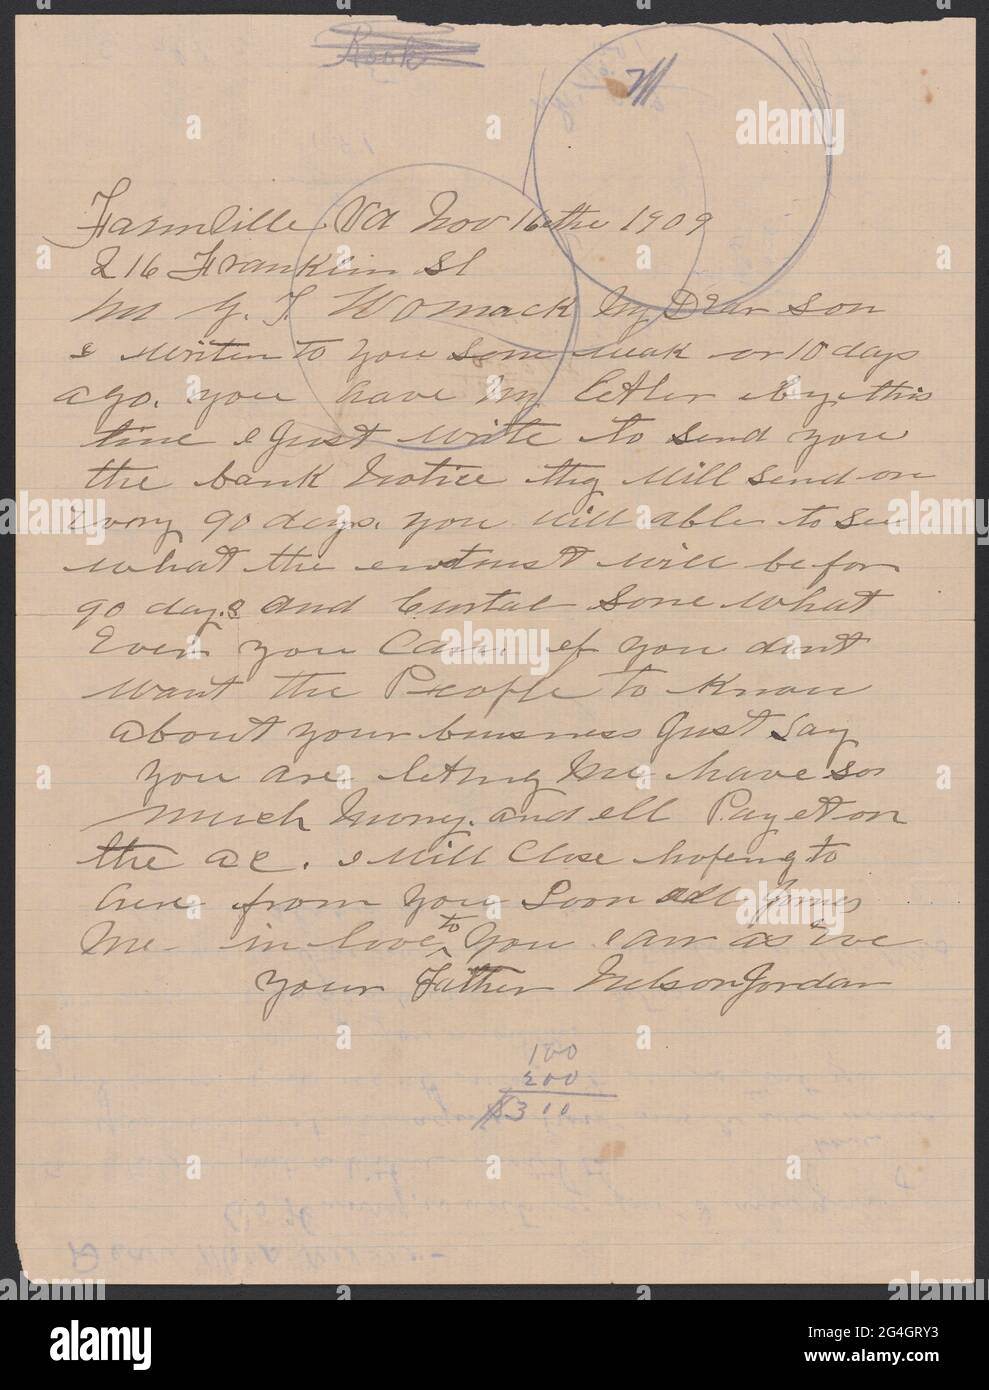 Rook
M
Farmville Va Nov 16the 1909
216 Franklin St
Mr Y. T. Womack My Dear Son
I writen to you some weak or 10 days
ago. you have my letter by this
time I Just write to send you
the bank Notice they Will send on
Every 90 days. you will able to see
what the entrust will be for
90 days and Curtal some what
Even you Can. if you dont
want the People to know
about your buisness Just Say
you are leting me have so
much mony. and ell Pay et on
the ac. I Will Close hopeing to
here from you Soon all Jones
me in love to you I am as eve
your Father Nelson Jordan
100
200
$300
Dear
alamy
Image ID: 2G4GRY3
www.alamy.com